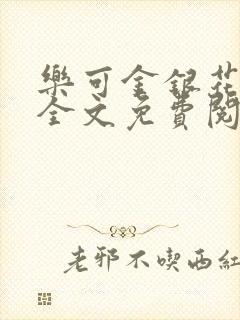 樂可金銀花
全文免費閱
老邪不喫西紅